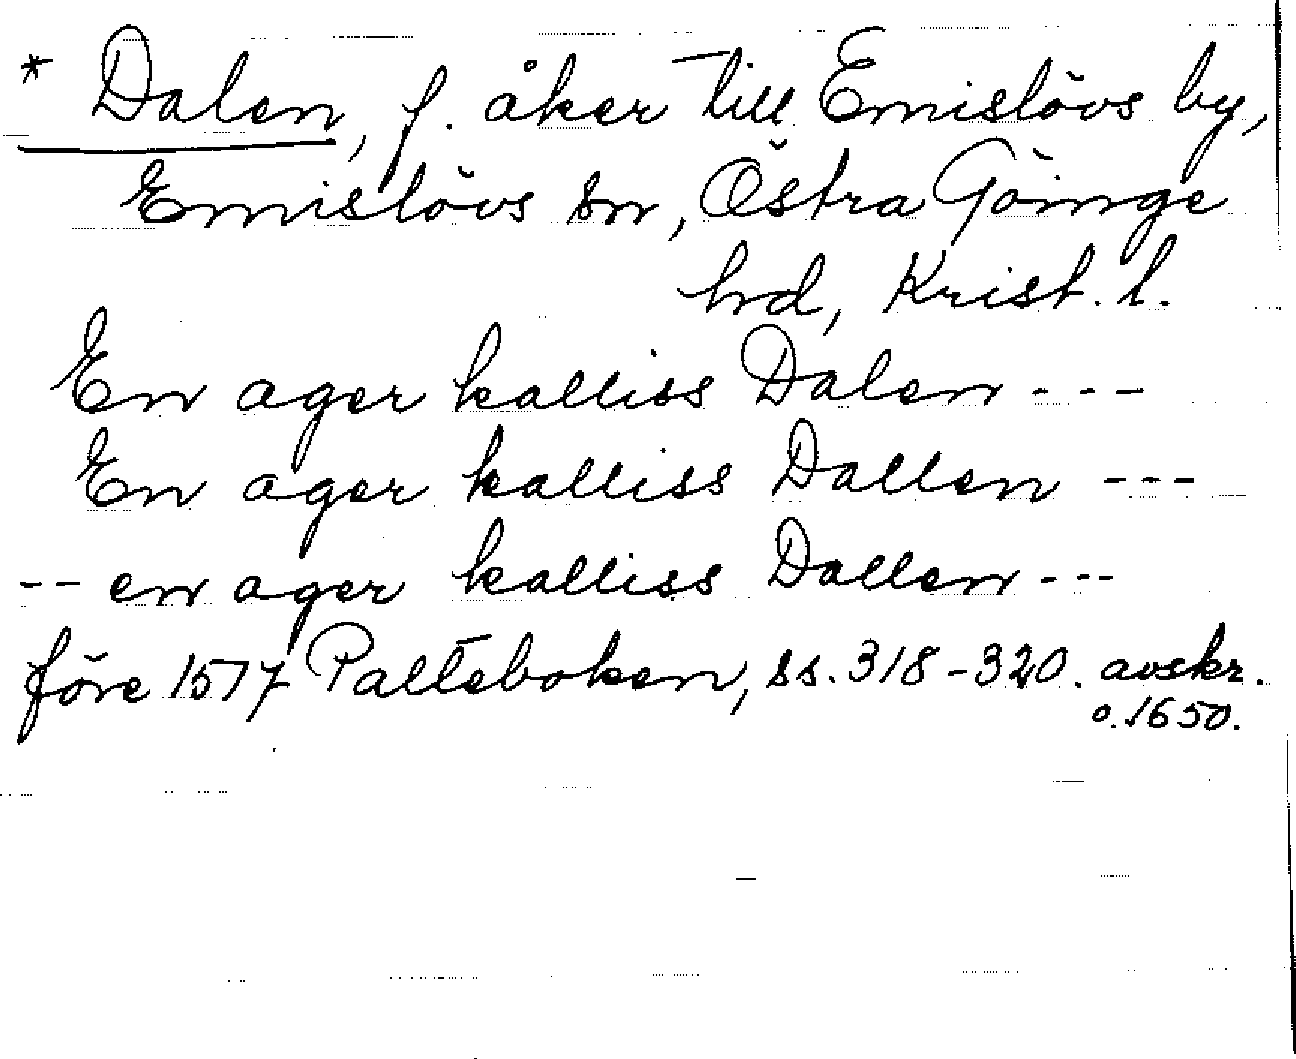 * Dalen, f. åker till Emislövs by,
Emislövs sn, Östra Göinge
hrd, Krist. l.
En ager kalliss Dalen - - -
En ager kalliss Dallen - - -
- - en ager kalliss Dallen - - -
före 1517 Palteboken, ss. 318-320. avskr.
o. 1650.